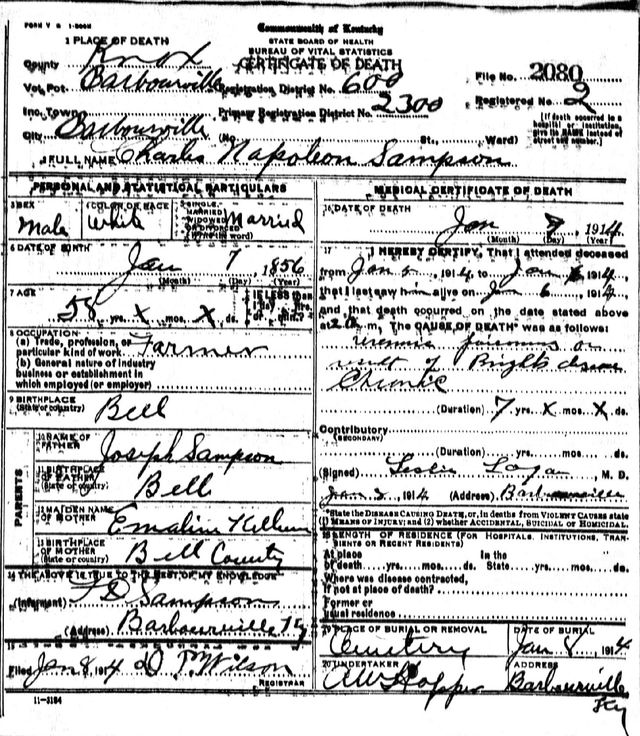 FORM V S 1-500M
Commonwealth of Kentucky
STATE BOARD OF HEALTH
BUREAU OF VITAL STATISTICS
CERTIFICATE OF DEATH
1 PLACE OF DEATH
County Knox
Vot. Pct. Barbourville Registration District No. 600 File No. 2080
Inc. Town Primary Registration District No. 2300 Registered No. 2
City Barbourville (No. St., Ward)
(If death occurred in a hospital or institution, give its NAME instead of street and number.)
2 FULL NAME Charles Napoleon Sampson
PERSONAL AND STATISTICAL PARTICULARS
3 SEX Male
4 COLOR OR RACE White
5 SINGLE, MARRIED, WIDOWED OR DIVORCED (Write in word) Married
6 DATE OF BIRTH Jan 7, 1856
(Month) (Day) (Year)
7 AGE 58 yrs. x mos. x ds.
8 OCCUPATION
(a) Trade, profession, or
particular kind of work Farmer
(b) General nature of industry
business or establishment in
which employed (or employer)
9 BIRTHPLACE
(State or country) Bell
PARENTS
10 NAME OF FATHER Joseph Sampson
11 BIRTHPLACE OF FATHER
(State or country) Bell
12 MAIDEN NAME OF MOTHER Emaline
13 BIRTHPLACE OF MOTHER
(State or country) Bell County
14 THE ABOVE IS TRUE TO THE BEST OF MY KNOWLEDGE
(Informant) F D Sampson
(Address) Barbourville Ky
15
Filed Jan 8, 1914 Wilson
REGISTRAR
11-3184
MEDICAL CERTIFICATE OF DEATH
16 DATE OF DEATH
Jan 7, 1914
(Month) (Day) (Year)
17 I HEREBY CERTIFY, That I attended deceased
from Jan 1914, to Jan 1914,
that I last saw him alive on Jan 6, 1914
and that death occurred on the date stated above
at m, The CAUSE OF DEATH* was as follows:
result of Brights disease
Chronic
(Duration) 7 yrs. x mos. x ds.
Contributory
(SECONDARY)
(Duration) yrs. mos. ds.
(Signed) Leslie Logan, M. D.
1914 (Address) Barbourville
*State the DISEASE CAUSING DEATH, or, in deaths from VIOLENT CAUSES state
(1) MEANS OF INJURY; and (2) whether ACCIDENTAL, SUICIDAL OR HOMICIDAL.
18 LENGTH OF RESIDENCE (FOR HOSPITALS, INSTITUTIONS, TRANSIENTS OR RECENT RESIDENTS)
At place In the
of death yrs. mos. ds. State yrs. mos. ds.
Where was disease contracted,
if not at place of death?
Former or
usual residence
19 PLACE OF BURIAL OR REMOVAL DATE OF BURIAL
Cemetery Jan 8 1914
20 UNDERTAKER ADDRESS
Hopper Barbourville
Ky